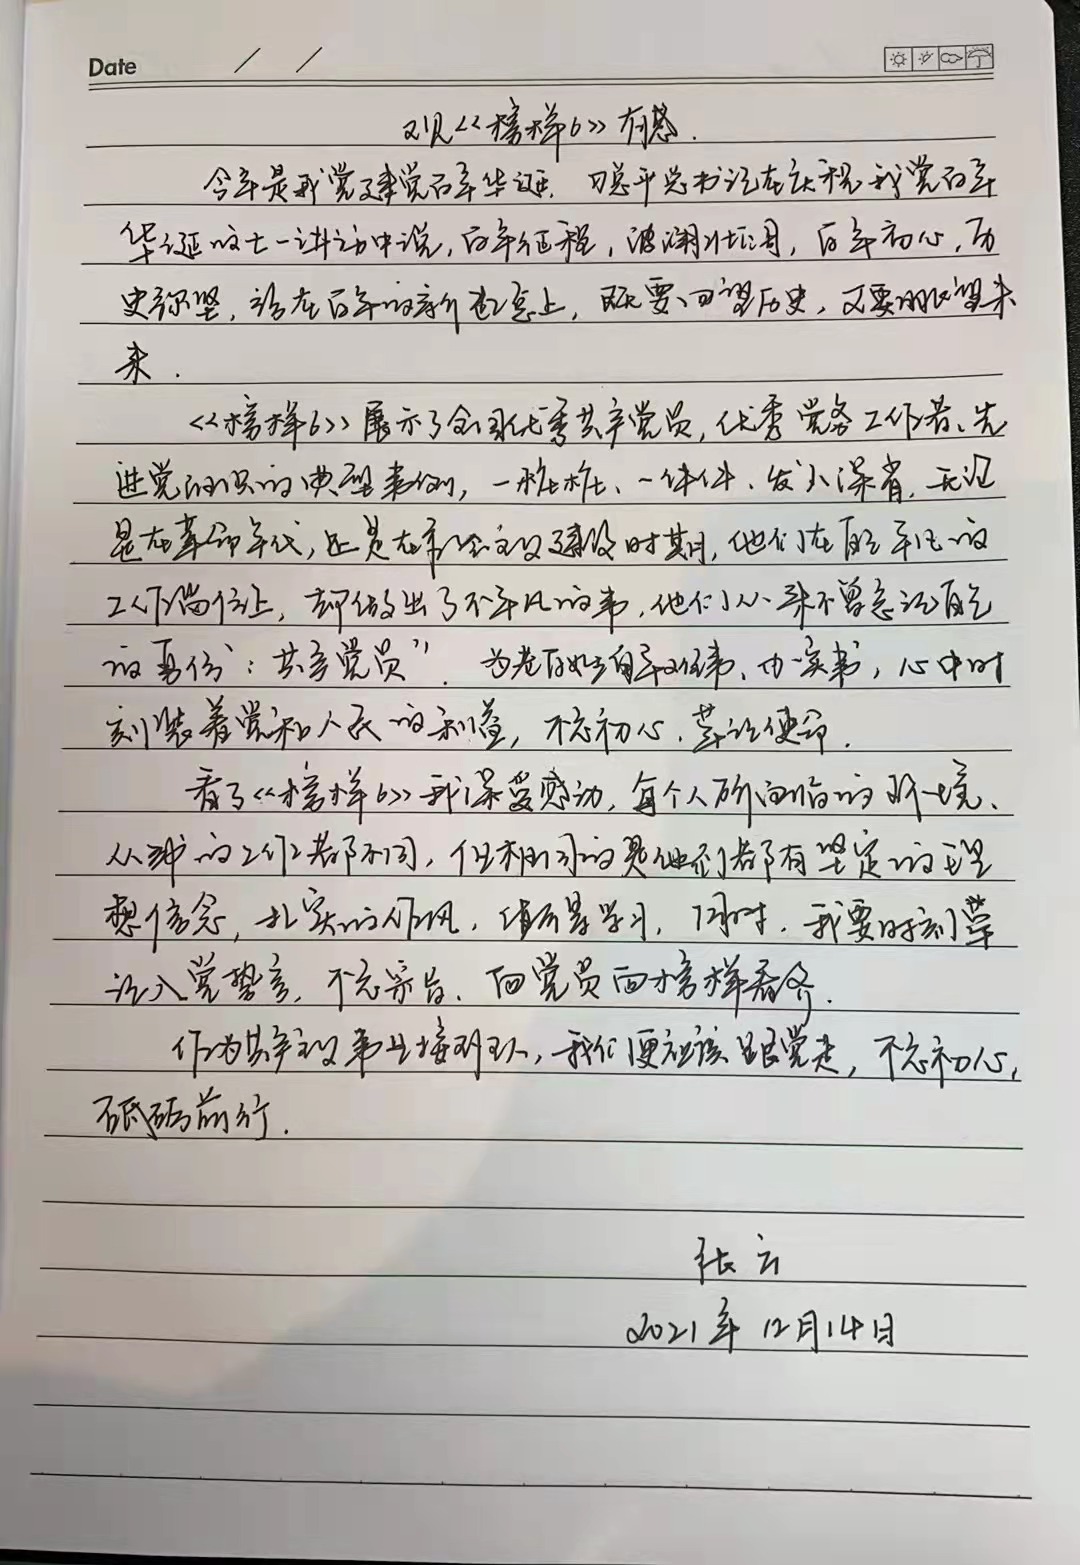 Date / /
观《榜样6》有感.
今年是我党建党百年华诞. 习总平总书记在庆祝我党百年
华诞的七一讲话中说, 百年征程, 波澜壮阔, 百年初心, 历
史弥坚, 站在百年的新起点上, 既要回望历史, 又要眺望未
来.
《榜样6》展示了全国优秀共产党员, 优秀党务工作者、先
进党组织的典型事例, 一桩桩、一件件、发人深省, 无论
是在革命年代, 还是在社会主义建设时期, 他们在自己平凡的
工作岗位上, 却做出了不平凡的事, 他们从来不曾忘记自己
的身份: 共产党员" 为老百姓办事、办实事, 心中时
刻装着党和人民的利益, 不忘初心、牢记使命.
看了《榜样6》我深受感动, 每个人所面临的环境、
从事的工作都不同, 但相同的是他们都有坚定的理
想信念, 扎实的作风, 值得学习, 同时, 我要时刻牢
记入党誓言, 不忘宗旨、向党员向榜样看齐.
作为共产主义事业接班人, 我们更应该跟党走, 不忘初心,
砥砺前行.
张云
2021年12月14日